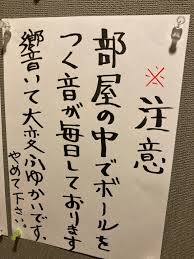 ※注意
部屋の中でボールを
つく音が毎日しております
響いて大変ふゆかいです、
やめて下さい。